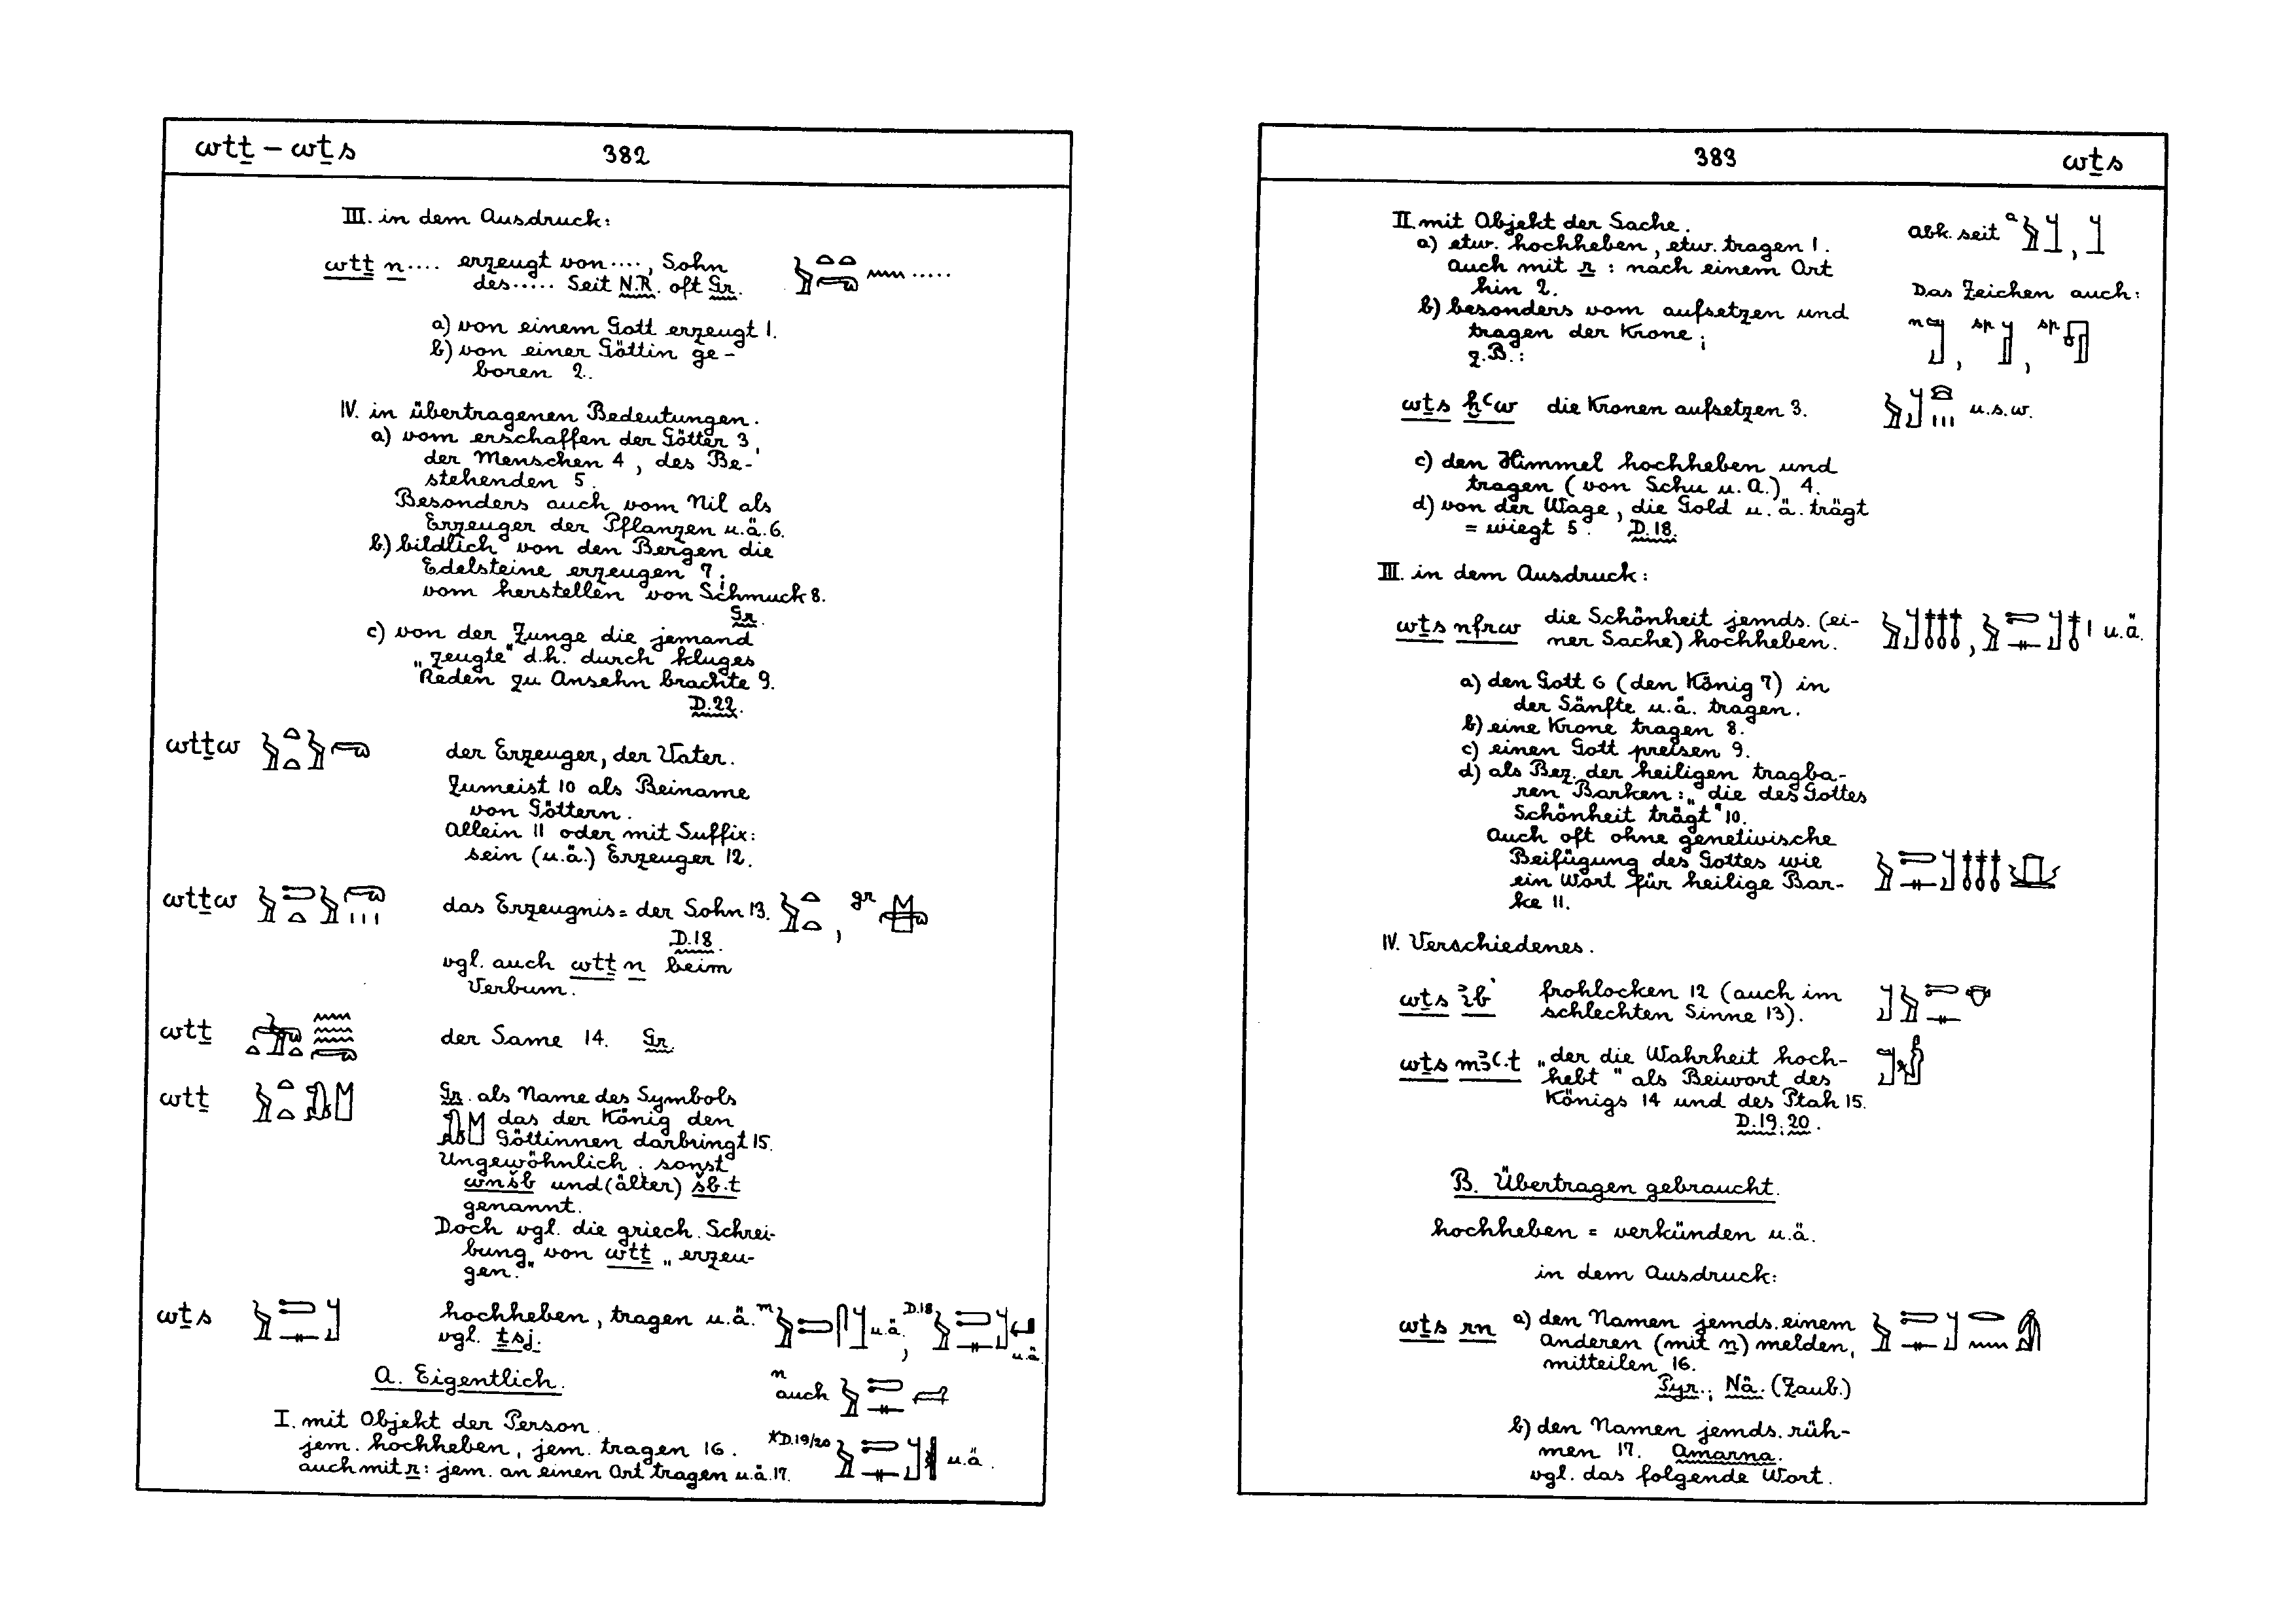 wtṯ – wṯs 382
III. in dem Ausdruck:
wtṯ n.... erzeugt von ...., Sohn
des..... Seit N.R. oft Gr.
a) von einem Gott erzeugt 1.
b) von einer Göttin ge-
boren 2.
IV. in übertragenen Bedeutungen.
a) vom erschaffen der Götter 3,
der Menschen 4, des Be-
stehenden 5.
Besonders auch vom Nil als
Erzeuger der Pflanzen u.ä. 6.
b) bildlich von den Bergen die
Edelsteine erzeugen 7;
vom herstellen von Schmuck 8.
Gr.
c) von der Zunge die jemand
„zeugte" d.h. durch kluges
Reden zu Ansehn brachte 9.
D.22.
wtṯw der Erzeuger, der Vater.
Zumeist 10 als Beiname
von Göttern.
Allein 11 oder mit Suffix:
sein (u.ä.) Erzeuger 12.
wtṯw das Erzeugnis = der Sohn 13. , gr
D.18.
vgl. auch wtṯ n beim
Verbum.
wtṯ der Same 14. Gr.
wtṯ Gr. als Name des Symbols
das der König den
Göttinnen darbringt 15.
Ungewöhnlich; sonst
wnšb und (älter) šb.t
genannt.
Doch vgl. die griech. Schrei-
bung von wtṯ „erzeu-
gen."
wṯs hochheben, tragen u.ä. m u.ä., D.18 u.ä.
vgl. ṯsj.
A. Eigentlich. n auch
I. mit Objekt der Person.
jem. hochheben, jem. tragen 16. *D.19/20 u.ä.
auch mit r: jem. an einen Ort tragen u.ä. 17.
383 wṯs
II. mit Objekt der Sache. abk. seit a ,
a) etw. hochheben, etw. tragen 1.
auch mit r: nach einem Ort
hin 2. Das Zeichen auch:
b) besonders vom aufsetzen und
tragen der Krone; n , sp , sp
z.B.:
wṯs ḫꜥw die Kronen aufsetzen 3. u.s.w.
c) den Himmel hochheben und
tragen (von Schu u.A.) 4.
d) von der Wage, die Gold u.ä. trägt
= wiegt 5. D.18.
III. in dem Ausdruck:
wṯs nfrw die Schönheit jemds. (ei-
ner Sache) hochheben. , u.ä.
a) den Gott 6 (den König 7) in
der Sänfte u.ä. tragen.
b) eine Krone tragen 8.
c) einen Gott preisen 9.
d) als Bez. der heiligen tragba-
ren Barken: „die des Gottes
Schönheit trägt" 10.
Auch oft ohne genetivische
Beifügung des Gottes wie
ein Wort für heilige Bar-
ke 11.
IV. Verschiedenes.
wṯs ꜣib frohlocken 12 (auch im
schlechten Sinne 13).
wṯs mꜣꜥ.t „der die Wahrheit hoch-
hebt" als Beiwort des
Königs 14 und des Ptah 15.
D.19; 20.
B. Übertragen gebraucht.
hochheben = verkünden u.ä.
in dem Ausdruck:
wṯs rn a) den Namen jemds. einem
Anderen (mit n) melden,
mitteilen 16.
Pyr.; Nä. (Zaub.)
b) den Namen jemds. rüh-
men 17. Amarna.
vgl. das folgende Wort.